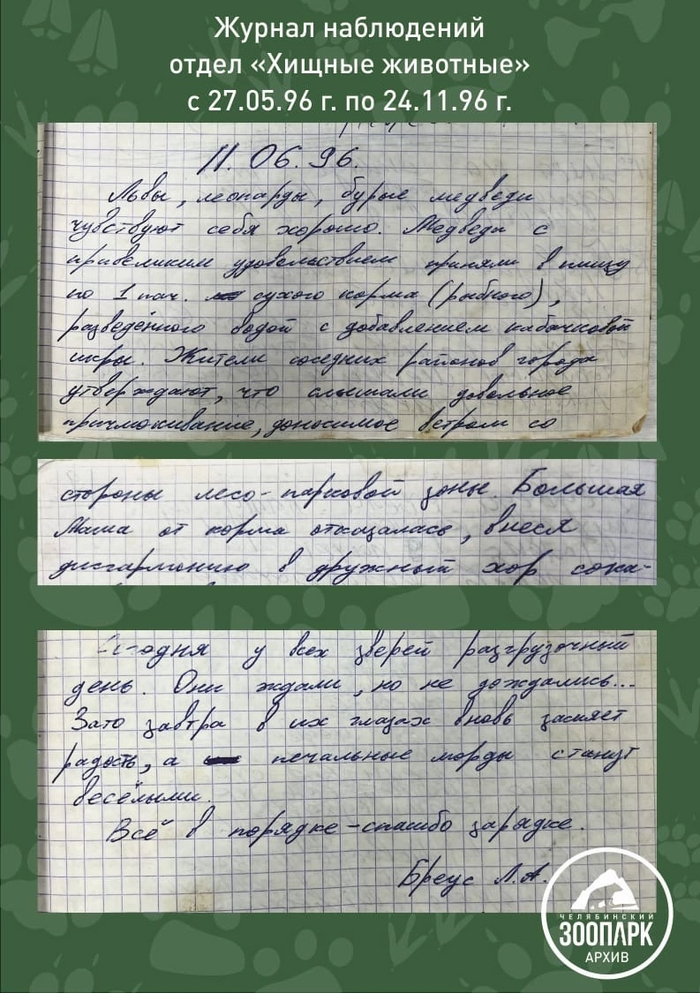 Журнал наблюдений
отдел «Хищные животные»
с 27.05.96 г. по 24.11.96 г.
11.06.96.
Львы, леопарды, бурые медведи
чувствуют себя хорошо. Медведи с
превеликим удовольствием приняли в пищу
по 1 пач. сухого корма (рыбного),
разведённого водой с добавлением кабачковой
икры. Жители соседних районов города
утверждают, что слышали довольное
причмокивание, доносимое ветром со
стороны лесо-парковой зоны. Большая
Мама от корма отказалась, внеся
дисгармонию в дружный хор сока-
Сегодня у всех зверей разгрузочный
день. Они ждали, но не дождались...
Зато завтра в их глазах вновь засияет
радость, а печальные морды станут
весёлыми.
Всё в порядке-спасибо зарядке.
Бреус Л.А.
ЧЕЛЯБИНСКИЙ
ЗООПАРК
АРХИВ